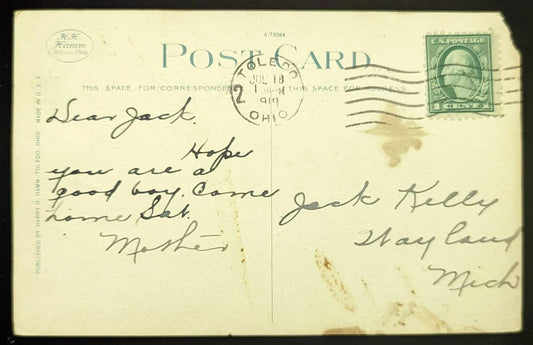 A-73084
HHH
Hamm
Toledo, Ohio.
POST CARD
THIS SPACE FOR CORRESPONDENCE
SPACE FOR ADDRESS
TOLEDO
JUL 18
1919
OHIO
2
U.S. POSTAGE
1 CENT 1
Dear Jack.
Hope
you are a
good boy. Come
home Sat.
Mother
Jack Kelly
Wayland
Mich
PUBLISHED BY HARRY H. HAMM, TOLEDO, OHIO. MADE IN U.S.A.